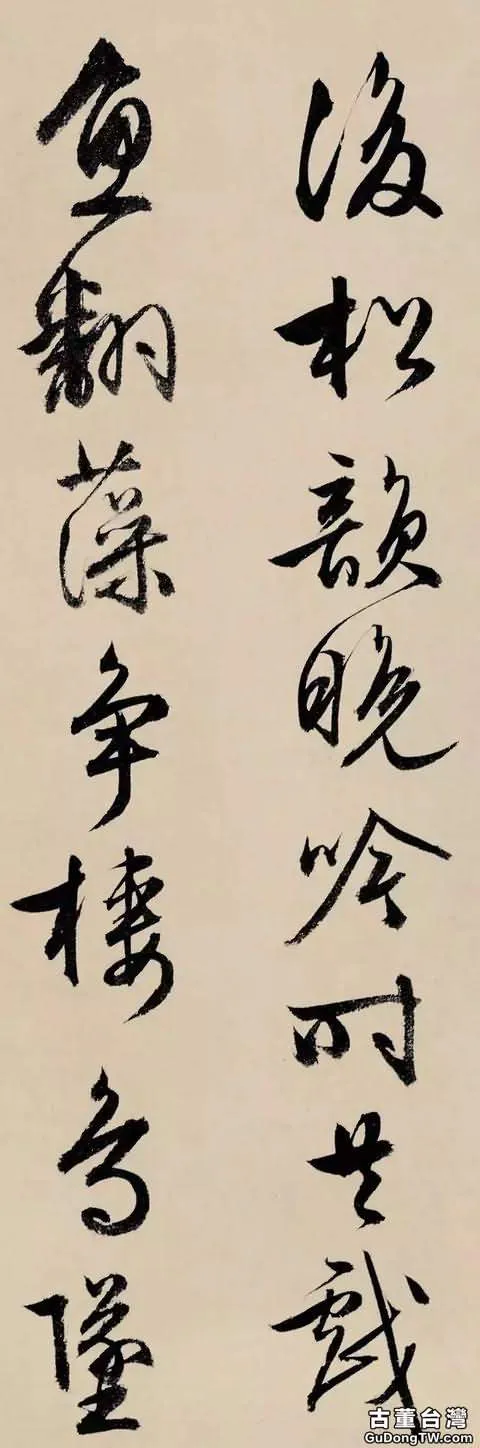 後松韻晚吟時共戲
魚翻藻爭棲鳥墜
古董台灣
GuDongTW.com